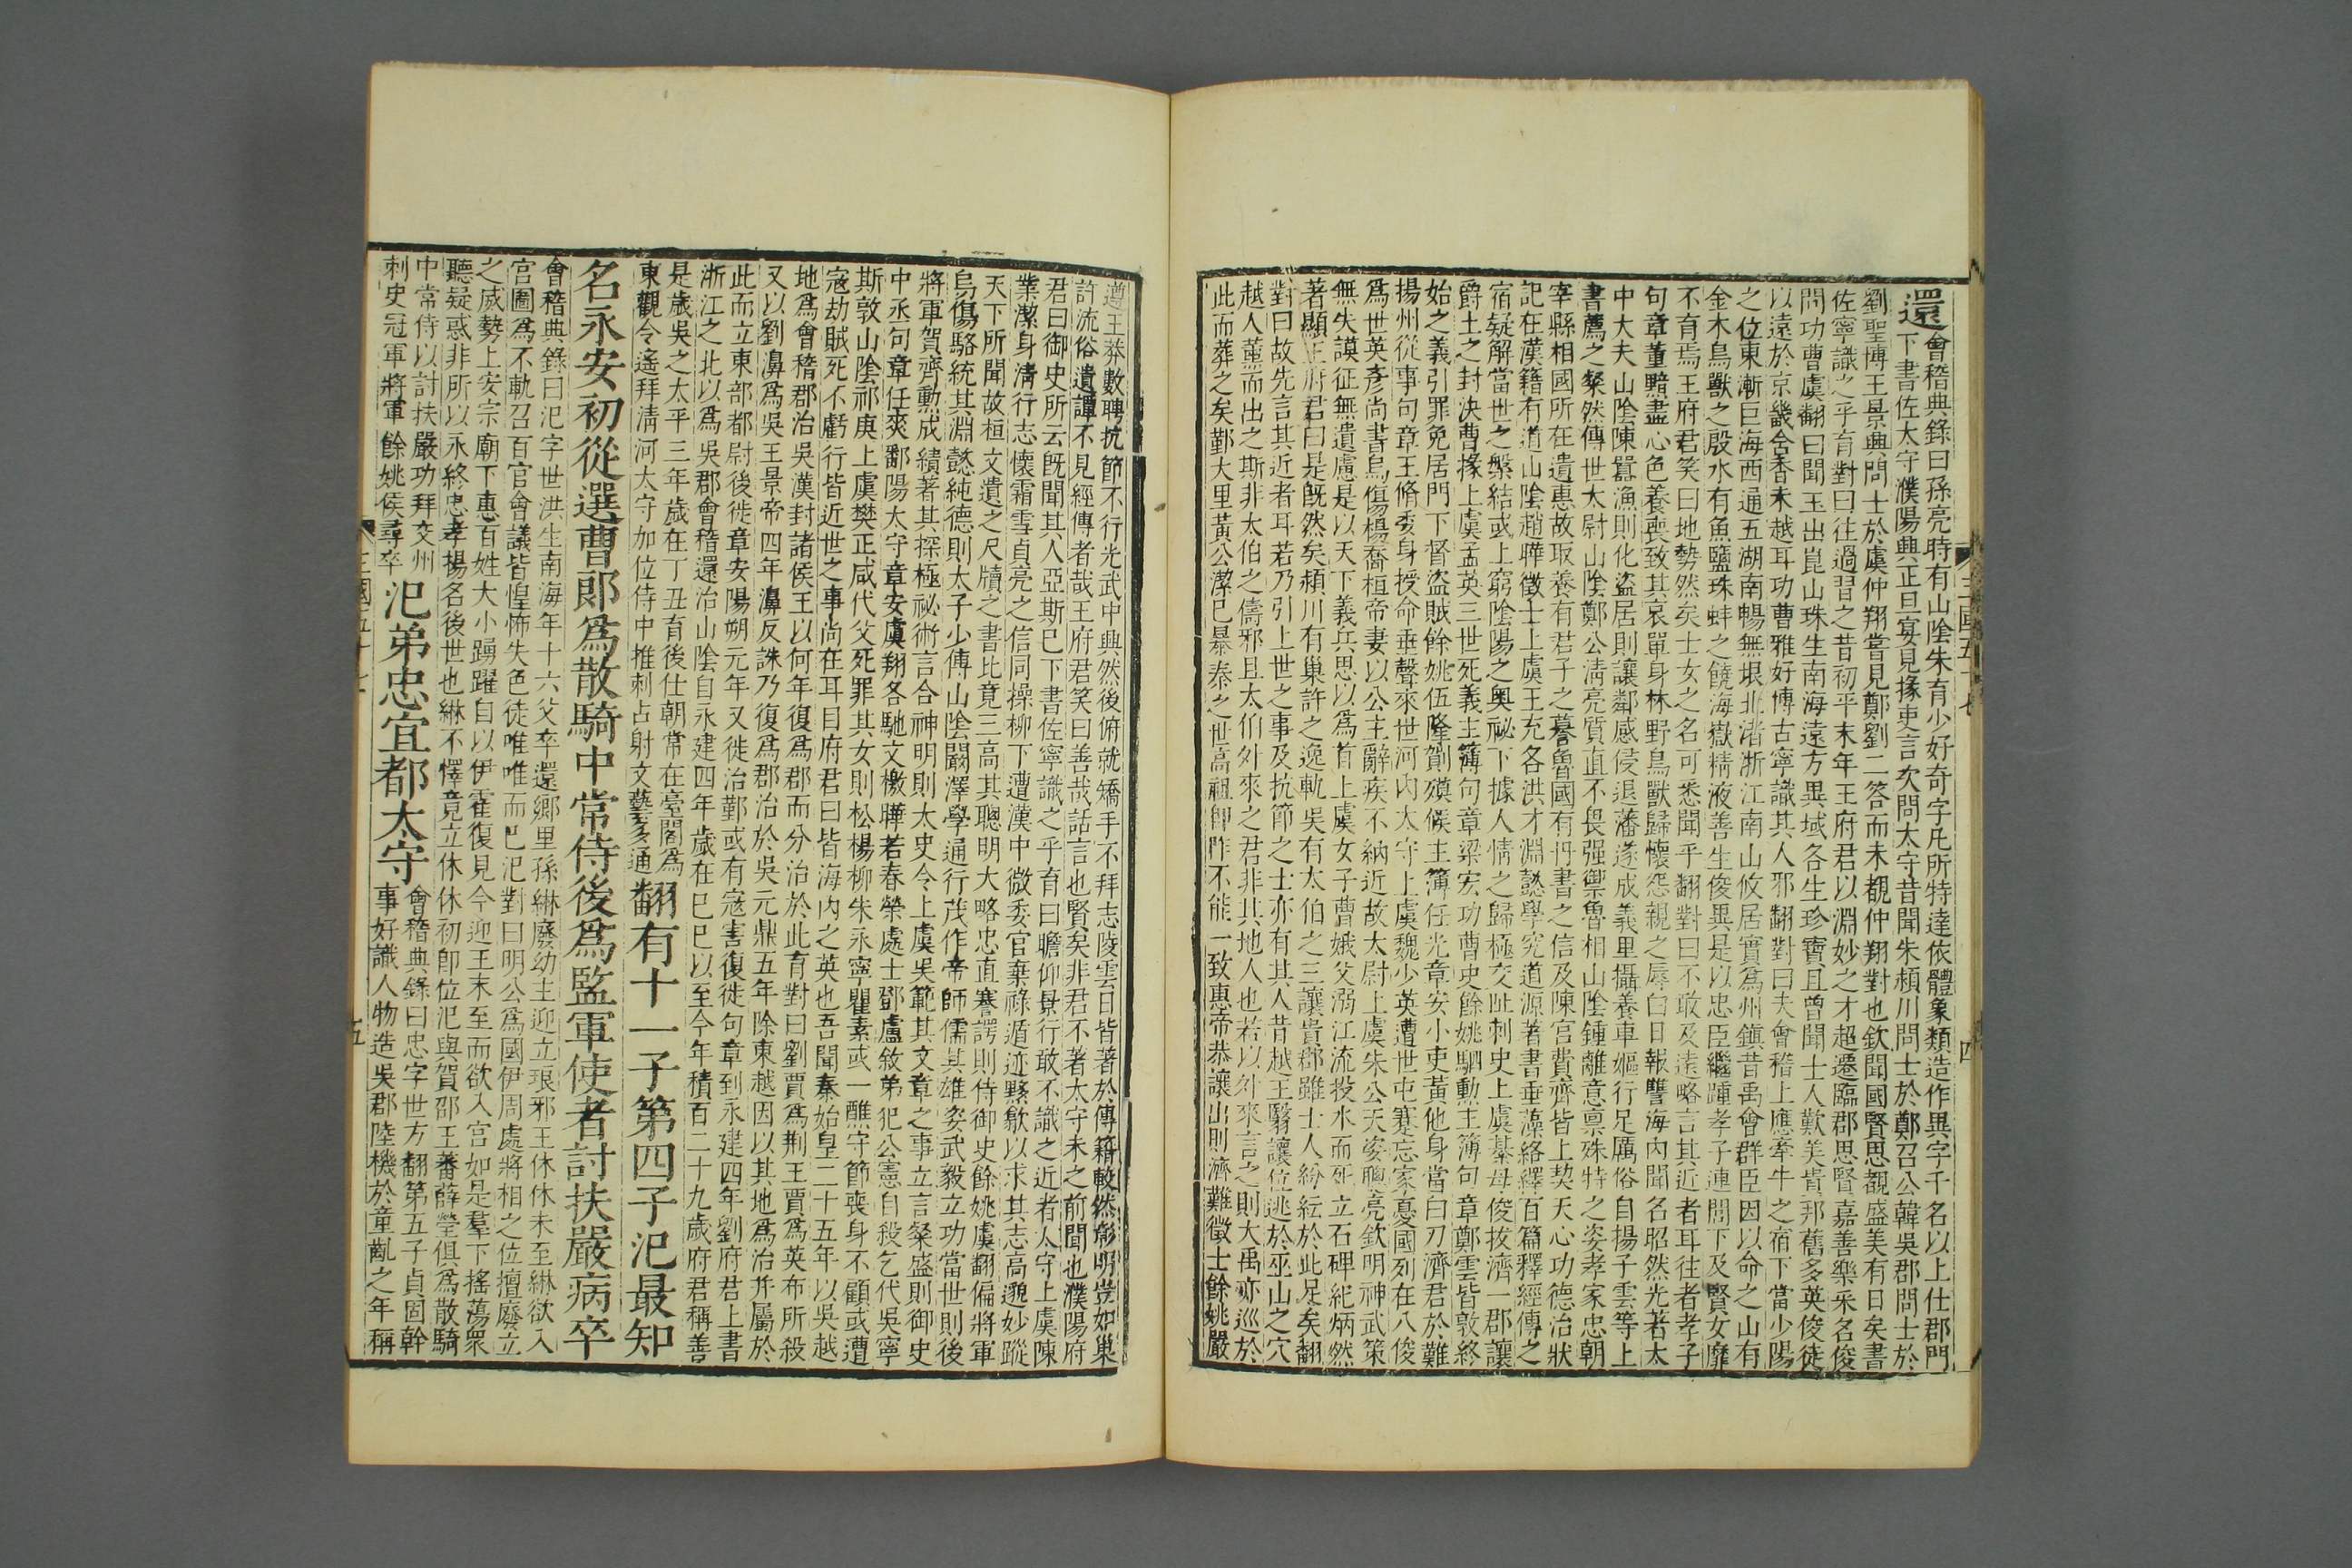 還會稽典錄曰孫亮時有山陰朱育少好奇字凡所特達依體象類造作異字千名以上仕郡門
下書佐太守濮陽興正旦宴見掾吏言次問太守昔聞朱潁川問士於鄭召公韓吳郡問士於
劉聖博王景興問士於虞仲翔嘗見鄭劉二答而未覩仲翔對也欽聞國賢思覩盛美有日矣書
佐寧識之乎育對曰往過習之昔初平末年王府君以淵妙之才超遷臨郡思賢嘉善樂采名俊
問功曹虞翻曰聞玉出崑山珠生南海遠方異域各生珍寶且曾聞士人歎美貴邦舊多英俊徒
以遠於京畿含香未越耳功曹雅好博古寧識其人邪翻對曰夫會稽上應牽牛之宿下當少陽
之位東漸巨海西通五湖南暢無垠北渚浙江南山攸居實爲州鎮昔禹會群臣因以命之山有
金木鳥獸之殷水有魚鹽珠蚌之饒海嶽精液善生俊異是以忠臣繼踵孝子連閭下及賢女靡
不有焉王府君笑曰地勢然矣士女之名可悉聞乎翻對曰不敢及遠略言其近者耳往者孝子
句章董黯盡心色養喪致其哀單身林野鳥獸歸懷怨親之辱白日報讐海內聞名昭然光著太
中大夫山陰陳囂漁則化盜居則讓鄰感侵退藩遂成義里攝養車嫗行足厲俗自揚子雲等上
書薦之粲然傳世太尉山陰鄭公淸亮質直不畏强禦魯相山陰鍾離意禀殊特之姿孝家忠朝
宰縣相國所在遺惠故取養有君子之謩魯國有丹書之信及陳宮費齊皆上契天心功德治狀
記在漢籍有道山陰趙曄徵士上虞王充各洪才淵懿學究道源著書垂藻絡繹百篇釋經傳之
宿疑解當世之槃結或上窮陰陽之奧祕下據人情之歸極交阯刺史上虞綦毋俊拔濟一郡讓
爵土之封決曹掾上虞孟英三世死義主簿句章梁宏功曹史餘姚駟勳主簿句章鄭雲皆敦終
始之義引罪免居門下督盜賊餘姚伍隆鄮莫候主簿任光章安小吏黃他身當白刃濟君於難
揚州從事句章王脩委身授命垂聲來世河內太守上虞魏少英遭世屯蹇忘家憂國列在八俊
爲世英彥尚書烏傷楊喬桓帝妻以公主辭疾不納近故太尉上虞朱公天姿聰亮欽明神武策
無失謨征無遺慮是以天下義兵思以爲首上虞女子曹娥父溺江流投水而死立石碑紀炳然
著顯王府君曰是旣然矣潁川有巢許之逸軌吳有太伯之三讓貴郡雖士人紛紜於此足矣翻
對曰故先言其近者耳若乃引上世之事及抗節之士亦有其人昔越王翳讓位逃於巫山之穴
越人薰而出之斯非太伯之儔邪且太伯外來之君非其地人也若以外來言之則大禹亦巡於
此而葬之矣鄞大里黃公潔已暴秦之世高祖卽阼不能一致惠帝恭讓出則濟難徵士餘姚嚴
三國五十七
四
遵王莽數聘抗節不行光武中興然後俯就矯手不拜志陵雲日皆著於傳籍較然彰明豈如巢
許流俗遺譚不見經傳者哉王府君笑曰善哉話言也賢矣非君不著太守未之前聞也濮陽府
君曰御史所云旣聞其人亞斯已下書佐寧識之乎育曰瞻仰景行敢不識之近者太守上虞陳
業潔身淸行志懷霜雪貞亮之信同操柳下遭漢中微委官棄祿遁迹黟歙以求其志高邈妙蹤
天下所聞故桓文遺之尺牘之書比竟三高其聰明大略忠直謇諤則侍御史餘姚虞翻偏將軍
烏傷駱統其淵懿純德則太子少傅山陰闞澤學通行茂作帝師儒其雄姿武毅立功當世則後
將軍賀齊勳成績著其探極祕術言合神明則太史令上虞吳範其文章之事立言粲盛則御史
中丞句章任奕鄱陽太守章安虞翔各馳文檄曄若春榮處士鄧盧敘弟犯公憲自殺乞代吳寧
斯敦山陰祁庚上虞樊正咸代父死罪其女則松楊柳朱永寧瞿素或一醮守節喪身不顧或遭
寇劫賊死不虧行皆近世之事尚在耳目府君曰皆海內之英也吾聞秦始皇二十五年以吳越
地爲會稽郡治吳漢封諸侯王以何年復爲郡而分治於此育對曰劉賈爲荆王賈爲英布所殺
又以劉濞爲吳王景帝四年濞反誅乃復爲郡治於吳元鼎五年除東越因以其地爲治幷屬於
此而立東部都尉後徙章安陽朔元年又徙治鄞或有寇害復徙句章到永建四年劉府君上書
浙江之北以爲吳郡會稽還治山陰自永建四年歲在巳巳以至今年積百二十九歲府君稱善
是歲吳之太平三年歲在丁丑育後仕朝常在臺閣爲
東觀令遙拜淸河太守加位侍中推刺占射文藝多通翻有十一子第四子汜最知
名永安初從選曹郎爲散騎中常侍後爲監軍使者討扶嚴病卒
會稽典錄曰汜字世洪生南海年十六父卒還鄉里孫綝廢幼主迎立琅邪王休休未至綝欲入
宮圖爲不軌召百官會議皆惶怖失色徒唯唯而已汜對曰明公爲國伊周處將相之位擅廢立
之威勢上安宗廟下惠百姓大小踴躍自以伊霍復見今迎王未至而欲入宮如是羣下搖蕩衆
聽疑惑非所以永終忠孝揚名後世也綝不懌竟立休休初卽位汜與賀邵王蕃薛瑩俱爲散騎
中常侍以討扶嚴功拜交州
刺史冠軍將軍餘姚侯尋卒汜弟忠宜都太守會稽典錄曰忠字世方翻第五子貞固幹
事好識人物造吳郡陸機於童齓之年稱
三國五十七
五